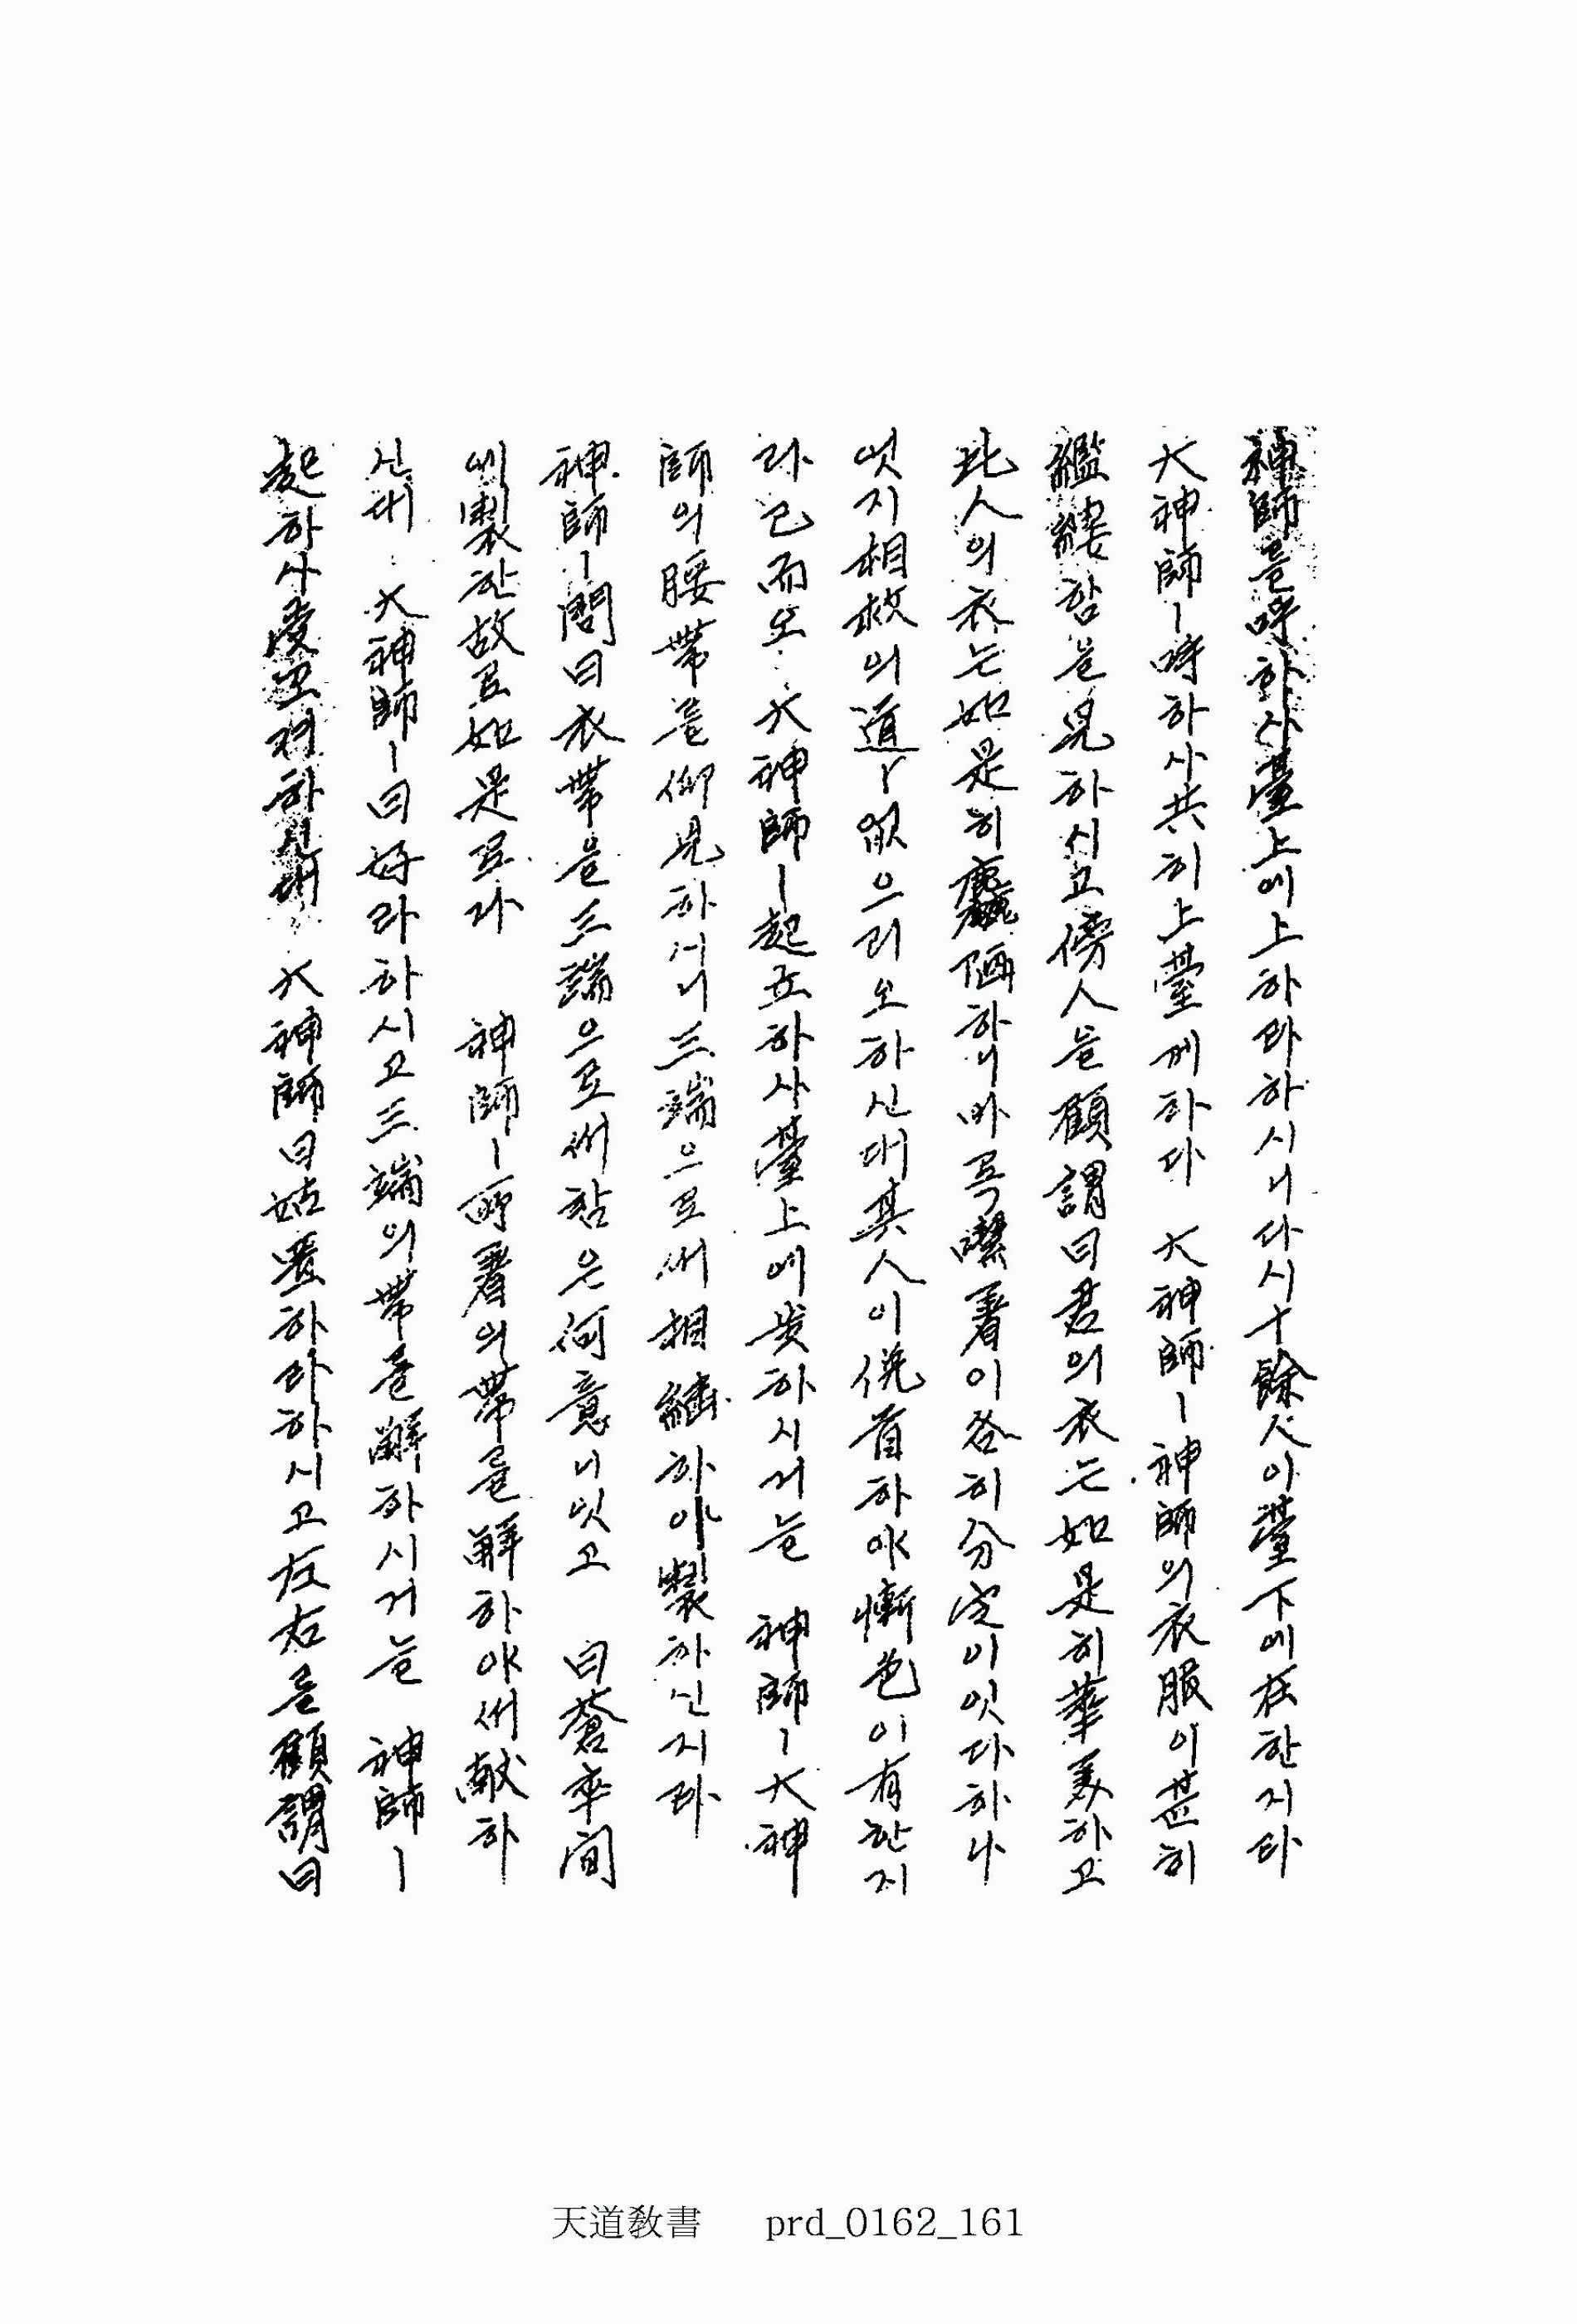 神師를呼하사臺上에上하라하시니다시十餘人이臺下에在한지라
大神師ㅣ呼하사共히上臺케하다 大神師ㅣ神師의衣服이甚히
繿縷함을見하시고傍人을顧謂曰君의衣는如是히華美하고
此人의衣는如是히麤陋하니마록喫著이各히分定이잇다하나
엇지相救의道ㅣ없으리오하신대其人이俛首하야慚色이有한지
라已而오 大神師ㅣ起立하사臺上에步하시거늘 神師ㅣ大神
師의腰帶를仰見하시니三端으로써相繼하야製하신지라
神師ㅣ問曰衣帶를三端으로써함은何意니잇고 曰蒼卒間
에製한故로如是로라 神師ㅣ所著의帶를解하야써獻하
신대 大神師ㅣ曰好라하시고三端의帶를解하시거늘 神師ㅣ
起하사受코저하신대 大神師曰姑置하라하시고左右를顧謂曰
天道敎書 prd_0162_161